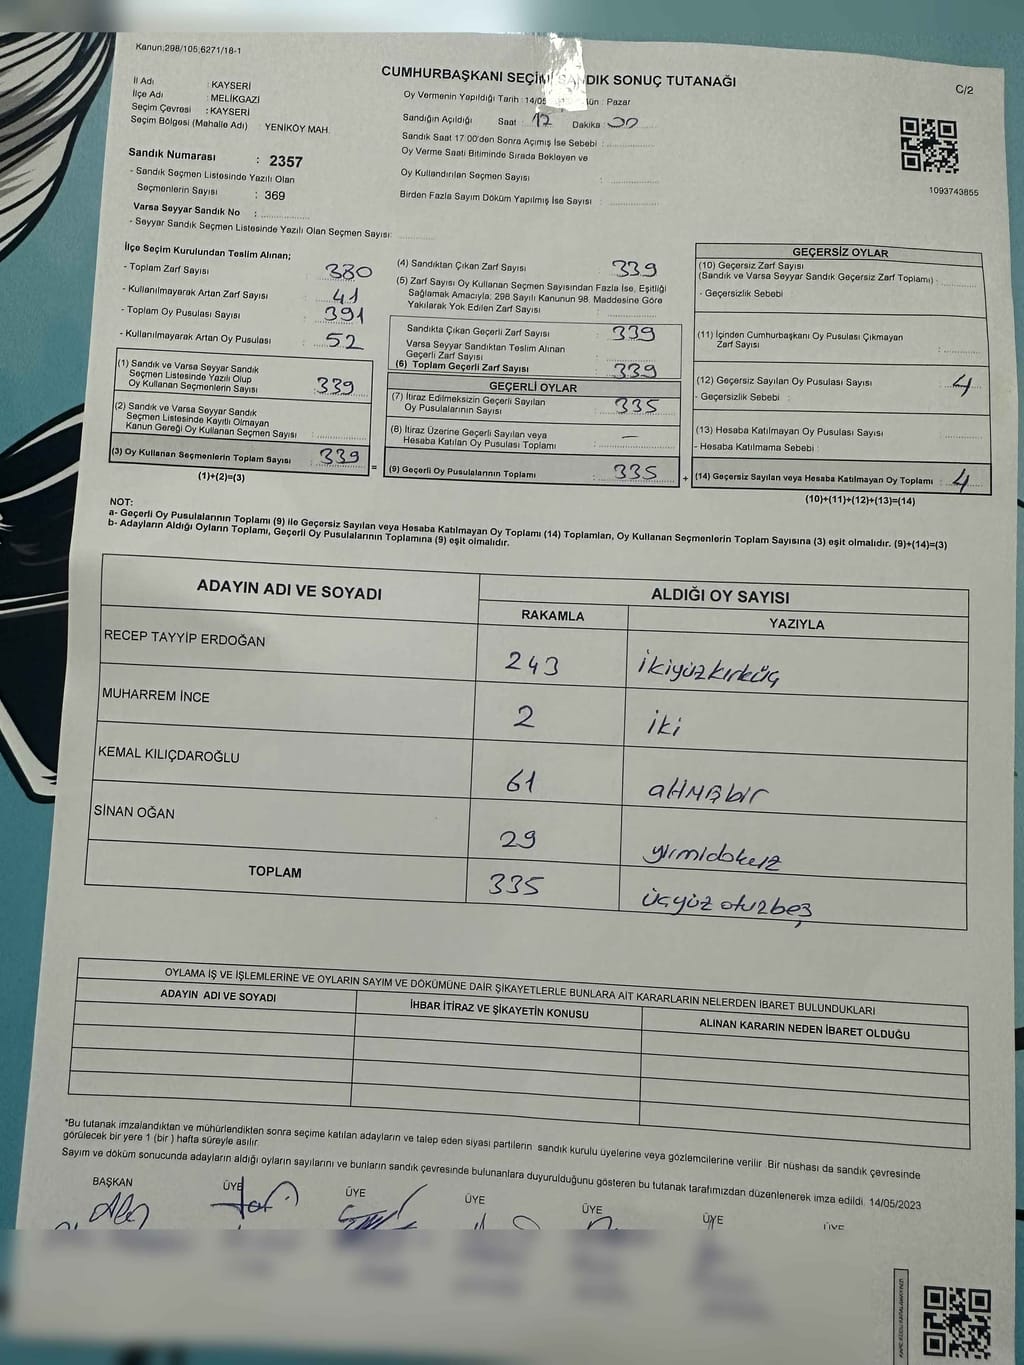 Kanun:298/105;6271/18-1
CUMHURBAŞKANI SEÇİMİ SANDIK SONUÇ TUTANAĞI
C/2
İl Adı : KAYSERİ
İlçe Adı : MELİKGAZİ
Seçim Çevresi : KAYSERİ
Seçim Bölgesi (Mahalle Adı) : YENİKÖY MAH.
Oy Vermenin Yapıldığı Tarih : 14/05 Gün : Pazar
Sandığın Açıldığı Saat : 17 Dakika : 00
Sandık Saat 17:00'den Sonra Açımış İse Sebebi :
Oy Verme Saati Bitiminde Sırada Bekleyen ve
Oy Kullandırılan Seçmen Sayısı :
Birden Fazla Sayım Döküm Yapılmış İse Sayısı :
1093743855
Sandık Numarası : 2357
- Sandık Seçmen Listesinde Yazılı Olan
Seçmenlerin Sayısı : 369
Varsa Seyyar Sandık No :
- Seyyar Sandık Seçmen Listesinde Yazılı Olan Seçmen Sayısı:
İlçe Seçim Kurulundan Teslim Alınan;
- Toplam Zarf Sayısı : 380
- Kullanılmayarak Artan Zarf Sayısı : 41
- Toplam Oy Pusulası Sayısı : 391
- Kullanılmayarak Artan Oy Pusulası : 52
(1) Sandık ve Varsa Seyyar Sandık
Seçmen Listesinde Yazılı Olup
Oy Kullanan Seçmenlerin Sayısı : 339
(2) Sandık ve Varsa Seyyar Sandık
Seçmen Listesinde Kayıtlı Olmayan
Kanun Gereği Oy Kullanan Seçmen Sayısı :
(3) Oy Kullanan Seçmenlerin Toplam Sayısı : 339
(1)+(2)=(3)
=
(4) Sandıktan Çıkan Zarf Sayısı : 339
(5) Zarf Sayısı Oy Kullanan Seçmen Sayısından Fazla İse, Eşitliği
Sağlamak Amacıyla; 298 Sayılı Kanunun 98. Maddesine Göre
Yakılarak Yok Edilen Zarf Sayısı :
Sandıkta Çıkan Geçerli Zarf Sayısı : 339
Varsa Seyyar Sandıktan Teslim Alınan
Geçerli Zarf Sayısı :
(6) Toplam Geçerli Zarf Sayısı : 339
GEÇERLİ OYLAR
(7) İtiraz Edilmeksizin Geçerli Sayılan
Oy Pusulalarının Sayısı : 335
(8) İtiraz Üzerine Geçerli Sayılan veya
Hesaba Katılan Oy Pusulası Toplamı : —
(9) Geçerli Oy Pusulalarının Toplamı : 335
+
GEÇERSİZ OYLAR
(10) Geçersiz Zarf Sayısı
(Sandık ve Varsa Seyyar Sandık Geçersiz Zarf Toplamı) :
- Geçersizlik Sebebi :
(11) İçinden Cumhurbaşkanı Oy Pusulası Çıkmayan
Zarf Sayısı :
(12) Geçersiz Sayılan Oy Pusulası Sayısı : 4
- Geçersizlik Sebebi :
(13) Hesaba Katılmayan Oy Pusulası Sayısı :
- Hesaba Katılmama Sebebi :
(14) Geçersiz Sayılan veya Hesaba Katılmayan Oy Toplamı : 4
(10)+(11)+(12)+(13)=(14)
NOT:
a- Geçerli Oy Pusulalarının Toplamı (9) ile Geçersiz Sayılan veya Hesaba Katılmayan Oy Toplamı (14) Toplamları, Oy Kullanan Seçmenlerin Toplam Sayısına (3) eşit olmalıdır. (9)+(14)=(3)
b- Adayların Aldığı Oyların Toplamı, Geçerli Oy Pusulalarının Toplamına (9) eşit olmalıdır.
ADAYIN ADI VE SOYADI
ALDIĞI OY SAYISI
RAKAMLA YAZIYLA
RECEP TAYYİP ERDOĞAN 243 ikiyüzkırküç
MUHARREM İNCE 2 iki
KEMAL KILIÇDAROĞLU 61 altmışbir
SİNAN OĞAN 29 yirmidokuz
TOPLAM 335 üçyüz otuzbeş
OYLAMA İŞ VE İŞLEMLERİNE VE OYLARIN SAYIM VE DÖKÜMÜNE DAİR ŞİKAYETLERLE BUNLARA AİT KARARLARIN NELERDEN İBARET BULUNDUKLARI
ADAYIN ADI VE SOYADI İHBAR İTİRAZ VE ŞİKAYETİN KONUSU ALINAN KARARIN NEDEN İBARET OLDUĞU
*Bu tutanak imzalandıktan ve mühürlendikten sonra seçime katılan adayların ve talep eden siyasi partilerin sandık kurulu üyelerine veya gözlemcilerine verilir. Bir nüshası da sandık çevresinde
görülecek bir yere 1 (bir ) hafta süreyle asılır.
Sayım ve döküm sonucunda adayların aldığı oyların sayılarını ve bunların sandık çevresinde bulunanlara duyurulduğunu gösteren bu tutanak tarafımızdan düzenlenerek imza edildi. 14/05/2023
BAŞKAN ÜYE ÜYE ÜYE ÜYE ÜYE ÜYE